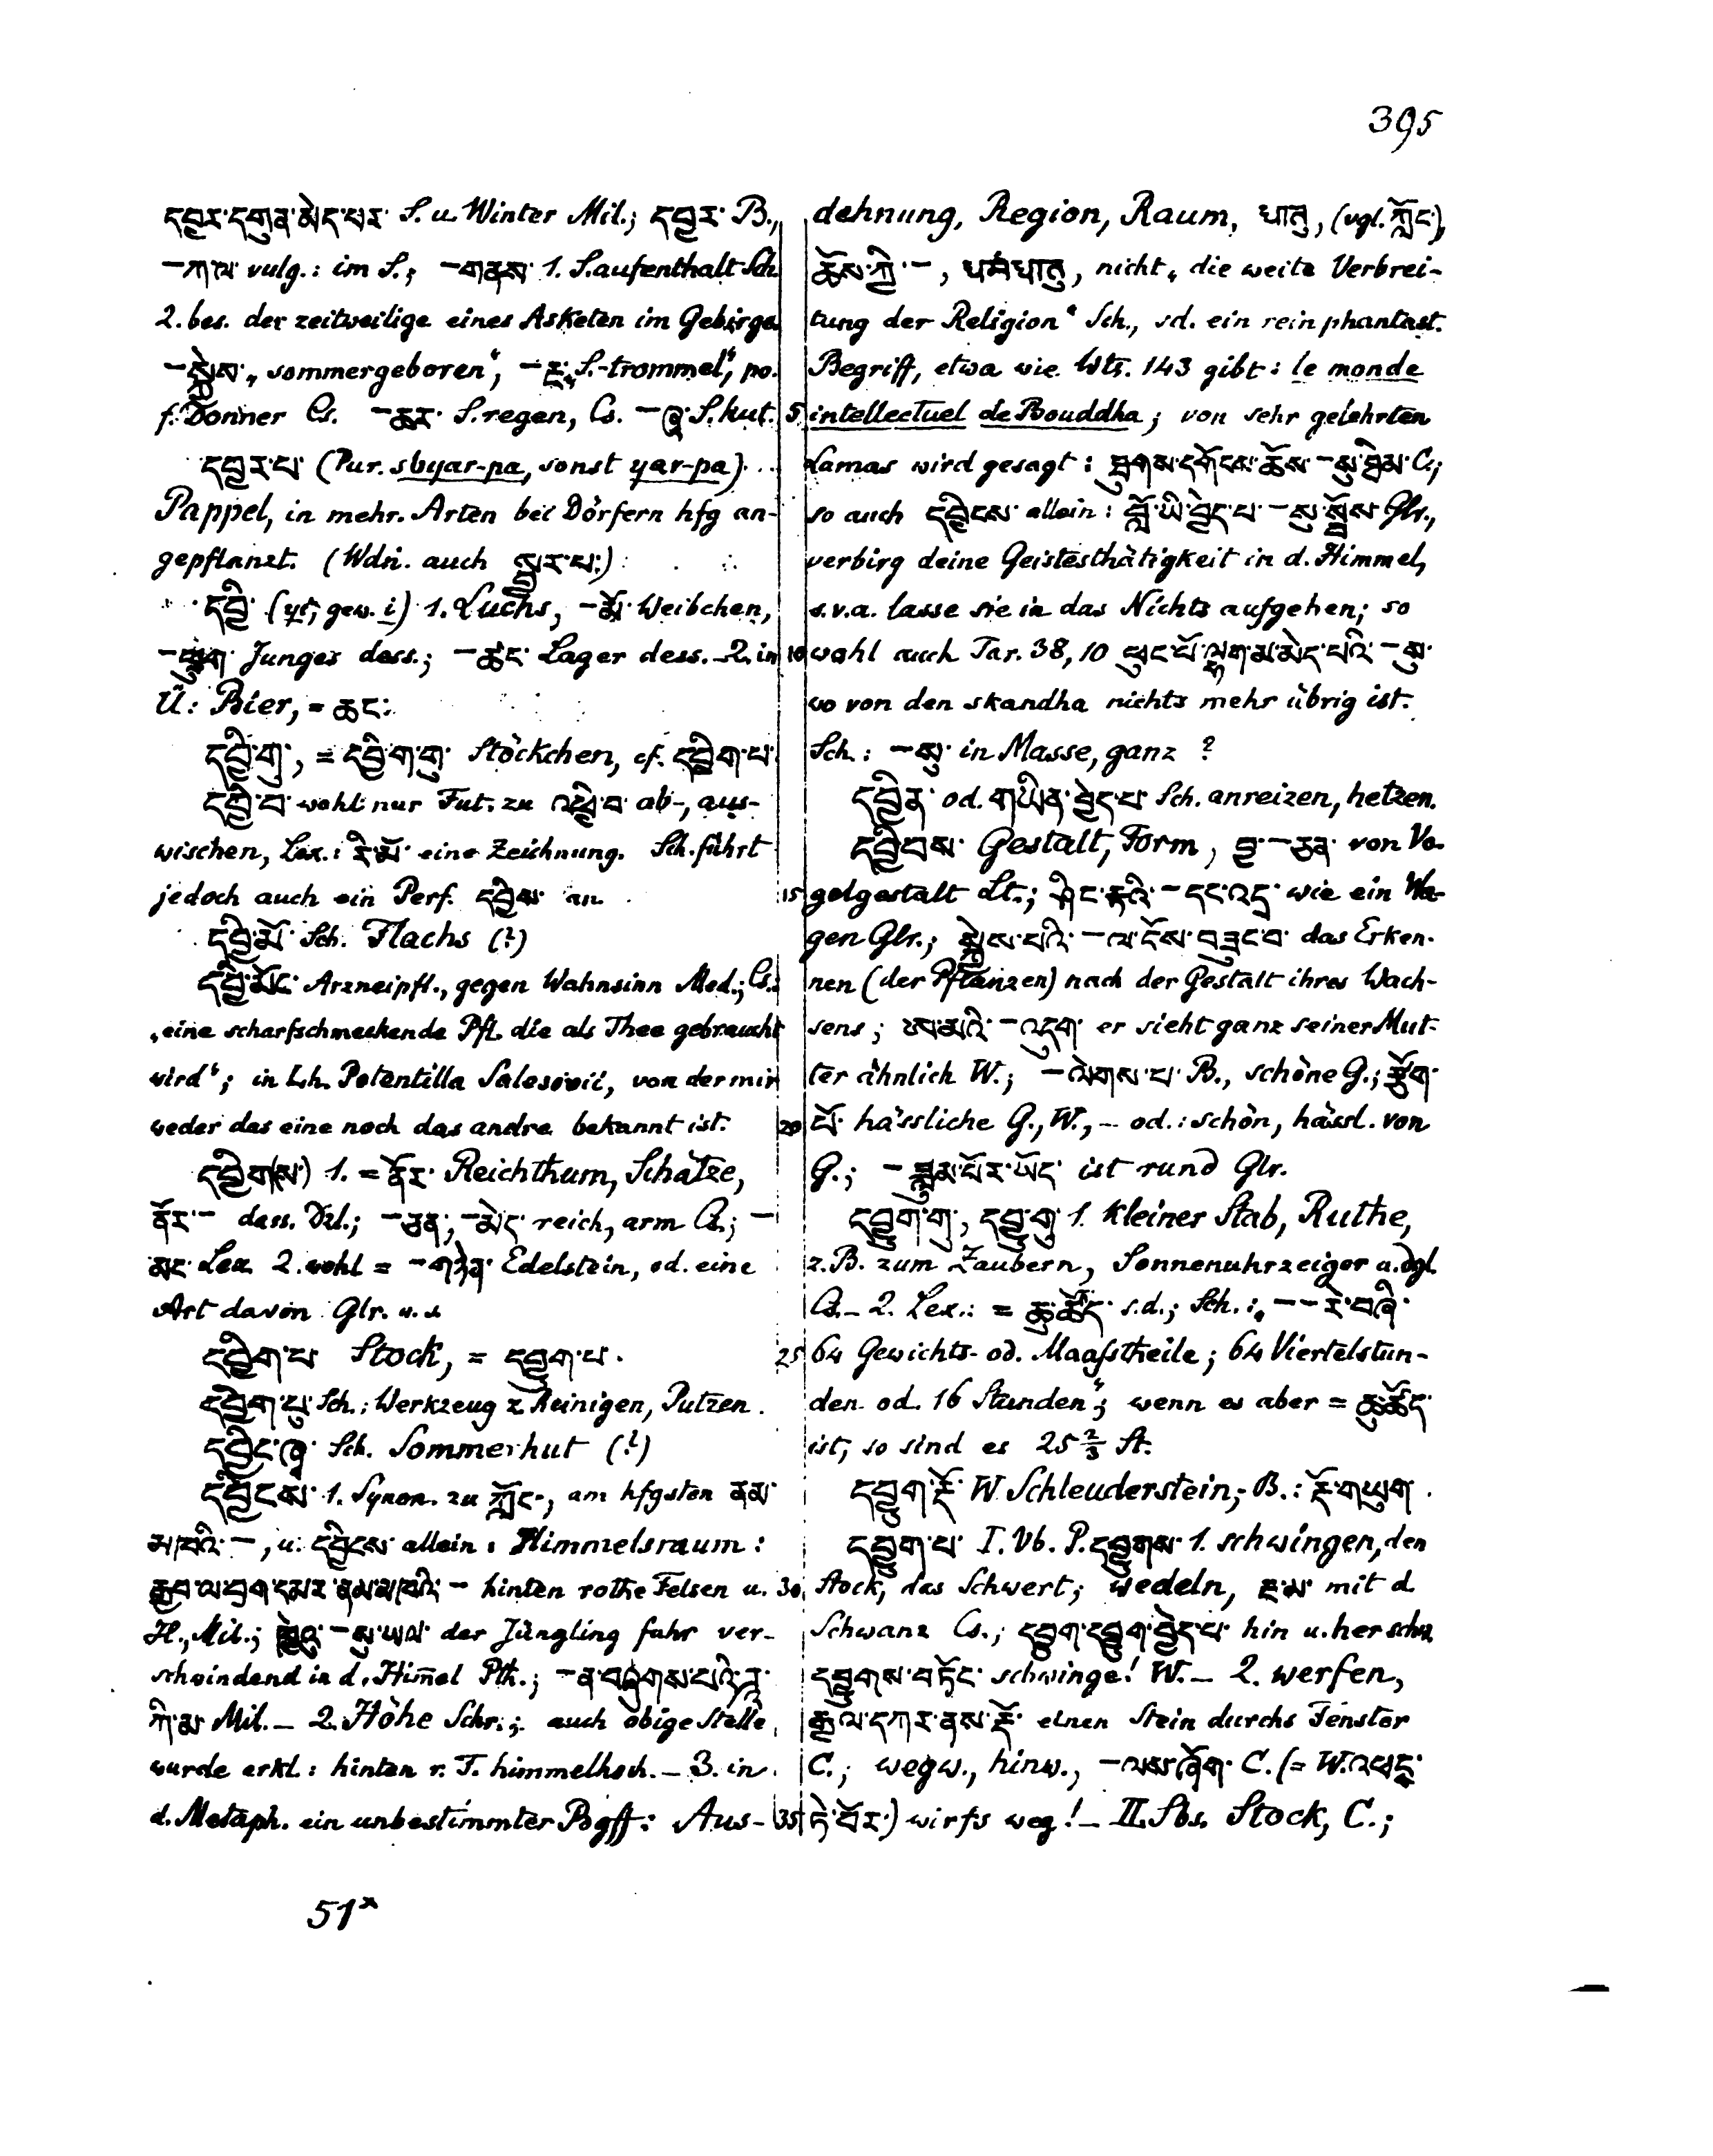 395
དབྱར་དགུན་མེད་པར་ S. u. Winter Mil.; དབྱར་ B.,
–ཀ་ལ་ vulg.: im S.; –གནས་ 1. S.aufenthalt Sch.
2. bes. der zeitweilige eines Asketen im Gebirge.
–སྐྱེས་ „sommergeboren“, –རྔ་ „S.-trommel“, po.
f. Donner Cs. –ཆར་ S.regen, Cs. –ཞྭ་ S.hut.
དབྱར་པ་ (Pur. sbyar-pa, sonst yar-pa)
Pappel, in mehr. Arten bei Dörfern hfg an-
gepflanzt. (Wdn. auch སྦྱར་པ་)
དབྱི་ (yi, gew. i) 1. Luchs, –མོ་ Weibchen,
–ཕྲུག་ Junges dess.; –ཚང་ Lager dess. – 2. in
Ü: Bier, = ཆང་
དབྱི་གུ་, = དབྱིག་གུ་ Stöckchen, cf. དབྱིག་པ་
དབྱི་བ་ wohl nur Fut. zu འཕྱི་བ་ ab-, aus-
wischen, Lex.: རི་མོ་ eine Zeichnung. Sch. führt
jedoch auch ein Perf. དབྱིས་ an.
དབྱི་མོ་ Sch. Flachs (?)
དབྱི་མོང་ Arzneipfl., gegen Wahnsinn Med.; Cs.:
„eine scharfschmeckende Pfl. die als Thee gebraucht
wird“; in Lh. Potentilla Salesovii, von der mir
weder das eine noch das andre bekannt ist.
དབྱིག(ས་) 1. = ནོར་ Reichthum, Schätze,
ནོར་– dass. Dzl.; –ཅན་, –མེད་ reich, arm Cs.; –
མང་ Lex. 2. wohl = –གཉེན་ Edelstein, od. eine
Art davon Glr. u. s.
དབྱིག་པ་ Stock, = དབྱུག་པ་.
དབྱིག་པུ་ Sch.: Werkzeug z. Reinigen, Putzen.
དབྱིང་ཞྭ་ Sch. Sommerhut (?)
དབྱིངས་ 1. Synon. zu ཀློང་, am hfgsten ནམ་
མཁའི་ –, u. དབྱིངས་ allein: Himmelsraum:
རྒྱབ་ལ་བྲག་དམར་ནམ་མཁའི་ – hinten rothe Felsen u.
H., Mil.; –སུ་ཡལ་ der Jüngling fuhr ver-
schwindend in d. Him̄el Pth.; –ན་བཞུགས་པའི་ཌཱ་
ཀི་མ་ Mil. – 2. Höhe Schr.; auch obige Stelle
wurde erkl.: hinten r. F. himmelhoch. – 3. in
d. Metaph. ein unbestimmter Bgff: Aus-
dehnung, Region, Raum, धातु, (vgl. ཀློང་),
ཆོས་ཀྱི་ –, धर्मधातु, nicht „die weite Verbrei-
tung der Religion“ Sch., sd. ein rein phantast.
Begriff, etwa wie Wts. 143 gibt: le monde
5 intellectuel de Bouddha; von sehr gelehrten
Lamas wird gesagt: ཐུགས་དགོངས་ཆོས་–སུ་ཐིམ་ C.;
so auch དབྱིངས་ allein: བློ་ཡི་བྱེད་པ་–སུ་སྦོས་ Glr.,
verbirg deine Geistesthätigkeit in d. Himmel,
s.v.a. lasse sie in das Nichts aufgehen; so
10 wohl auch Tar. 38, 10 ཕུང་པོ་ལྷག་མ་མེད་པའི་–སུ་
wo von den skandha nichts mehr übrig ist.
Sch.: –སུ་ in Masse, ganz ?
དབྱིན་ od. གཡིན་བྱེད་པ་ Sch. anreizen, hetzen.
དབྱིབས་ Gestalt, Form, བྱ་–ཅན་ von Vo-
15 gelgestalt Lt.; ཤིང་རྟའི་–དང་འདྲ་ wie ein Wa-
gen Glr.; སྐྱེས་པའི་–ལ་ངོས་བཟུང་བ་ das Erken-
nen (der Pflanzen) nach der Gestalt ihres Wach-
sens; ཨ་མའི་–འདུག་ er sieht ganz seiner Mut-
ter ähnlich W.; –ལེགས་པ་ B., schöne G.; རྩོག་
20 པོ་ hässliche G., W., – od.: schön, hässl. von
G.; –ཟླུམ་པོར་ཡོད་ ist rund Glr.
དབྱུག་གུ་, དབྱུ་གུ་ 1. kleiner Stab, Ruthe,
z. B. zum Zaubern, Sonnenuhrzeiger u. dgl.
Cs. – 2. Lex.: = ཆུ་ཚོད་ s.d.; Sch.: „––རེ་བཞི་
25 64 Gewichts- od. Maaßtheile; 64 Viertelstun-
den od. 16 Stunden“; wenn es aber = ཆུ་ཚོད་
ist, so sind es 25 2/3 St.
དབྱུག་རྡོ་ W. Schleuderstein, B.: རྡོ་གཡུག་.
དབྱུག་པ་ I. Vb. P. དབྱུགས་ 1. schwingen, den
30 Stock, das Schwert; wedeln, རྔ་མ་ mit d.
Schwanz Cs.; དབྱུག་དབྱུག་བྱེད་པ་ hin u. her schw.
དབྱུགས་བཏོང་ schwinge! W. – 2. werfen,
རྒྱལ་དཀར་ནས་རྡོ་ einen Stein durchs Fenster
C.; wegw., hinw., –ལས་ཞོག་ C. (= W. འཕང་
35 ཏེ་བོར་) wirfs weg! – II. Sbs. Stock, C.;
51*